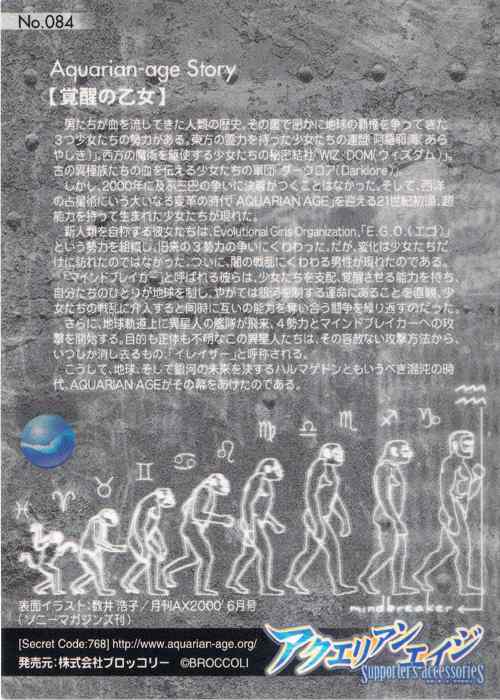 No.084
Aquarian-age Story
【覚醒の乙女】
男たちが血を流してきた人類の歴史。その裏で密かに地球の覇権を争ってきた
3つ少女たちの勢力がある。東方の霊力を持った少女たちの連盟「阿羅耶識(あら
やしき)」。西方の魔術を駆使する少女たちの秘密結社「WIZ-DOM(ウィズダム)」。
古の異種族たちの血を伝える少女たちの軍団「ダークロア(Darklore)」。
しかし、2000年に及ぶ三巴の争いに決着がつくことはなかった。そして、西洋
の占星術にいう大いなる変革の時代「AQUARIAN AGE」を迎える21世紀初頭、超
能力を持って生まれた少女たちが現れた。
新人類を自称する彼女たちは、Evolutional Girls Organization、「E.G.O.(エゴ)」
という勢力を組織し、旧来の3勢力の争いにくわわった。だが、変化は少女たちだ
けに訪れたのではなかった。ついに、闇の戦乱にくわわる男性が現れたのである。
「マインドブレイカー」と呼ばれる彼らは、少女たちを支配、覚醒させる能力を持ち、
自分たちのひとりが地球を制し、やがては銀河を制する運命にあることを直観、少
女たちの戦乱に介入すると同時に互いの能力を奪い合う闘争を繰り返すのだった。
さらに、地球軌道上に異星人の艦隊が飛来、4勢力とマインドブレイカーへの攻
撃を開始する。目的も正体も不明なこの異星人たちは、その容赦ない攻撃方法から、
いつしか消し去るもの、「イレイザー」と呼称される。
こうして、地球、そして銀河の未来を決するハルマゲドンともいうべき混沌の時
代、AQUARIAN AGEがその幕をあけたのである。
♓ ♈ ♉ ♊ ♋ ♌ ♍ ♎ ♏ ♐ ♑ ♒
mindbreaker
表面イラスト:数井 浩子/月刊AX2000' 6月号
(ソニーマガジンズ刊)
[Secret Code:768] http://www.aquarian-age.org/
発売元:株式会社ブロッコリー ©BROCCOLI
アクエリアンエイジ
Supporters accessories